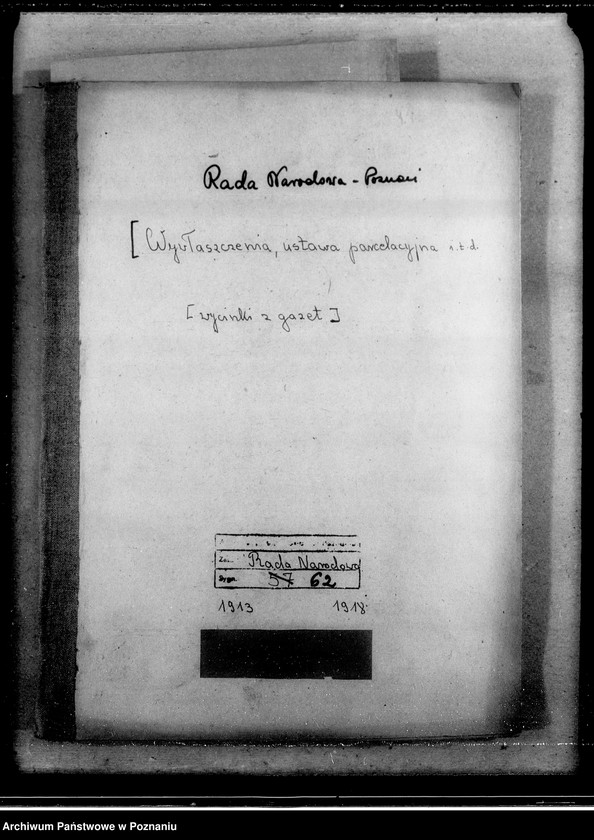 Rada Narodowa - Poznań
[Wywłaszczenia, ustawa parcelacyjna i.t.d.
[wycinki z gazet]
Rada Narodowa
Sygn. 57 62
1913 1918
Archiwum Państwowe w Poznaniu